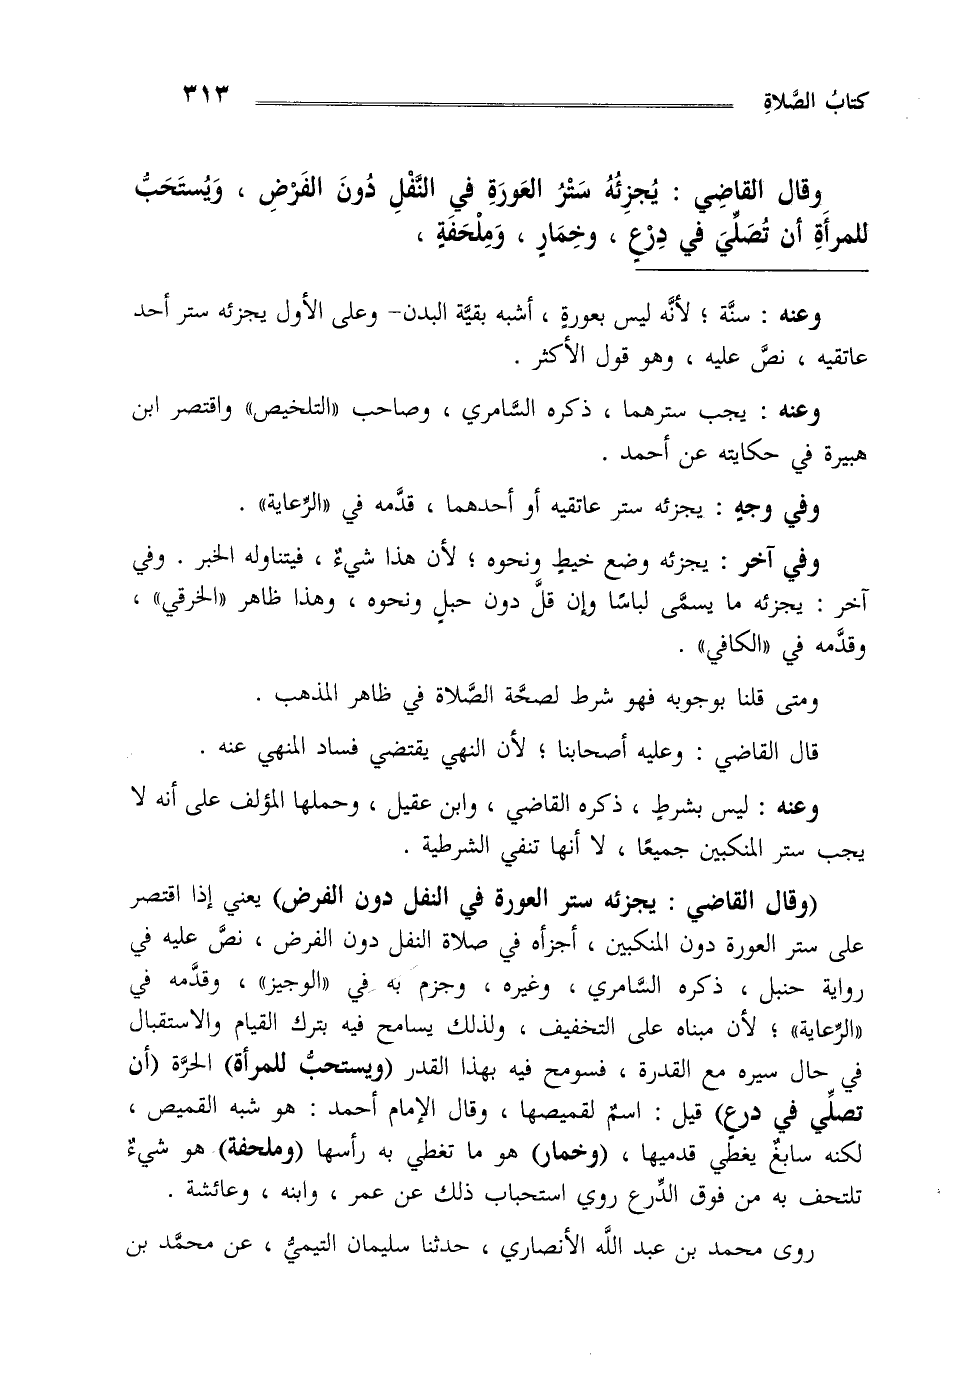 كتابُ الصَّلاةِ ٣١٣
وقال القاضِي : يُجزِئُهُ سَتْرُ العَورَةِ في النَّفْلِ دُونَ الفَرْضِ ، وَيُستَحَبُّ
للمرأَةِ أن تُصَلِّيَ في دِرْعٍ ، وخِمَارٍ ، وَمِلْحَفَةٍ ،
وعنه : سنَّة ؛ لأنَّه ليس بعورةٍ ، أشبه بقيَّة البدن- وعلى الأول يجزئه ستر أحد
عاتقيه ، نصَّ عليه ، وهو قول الأكثر .
وعنه : يجب سترهما ، ذكره السَّامري ، وصاحب «التلخيص» واقتصر ابن
هبيرة في حكايته عن أحمد .
وفي وجهٍ : يجزئه ستر عاتقيه أو أحدهما ، قدَّمه في «الرِّعاية» .
وفي آخر : يجزئه وضع خيطٍ ونحوه ؛ لأن هذا شيءٌ ، فيتناوله الخبر . وفي
آخر : يجزئه ما يسمَّى لباسًا وإن قلَّ دون حبلٍ ونحوه ، وهذا ظاهر «الخرقي» ،
وقدَّمه في «الكافي» .
ومتى قلنا بوجوبه فهو شرط لصحَّة الصَّلاة في ظاهر المذهب .
قال القاضي : وعليه أصحابنا ؛ لأن النهي يقتضي فساد المنهي عنه .
وعنه : ليس بشرطٍ ، ذكره القاضي ، وابن عقيل ، وحملها المؤلف على أنه لا
يجب ستر المنكبين جميعًا ، لا أنها تنفي الشرطية .
(وقال القاضي : يجزئه ستر العورة في النفل دون الفرض) يعني إذا اقتصر
على ستر العورة دون المنكبين ، أجزأه في صلاة النفل دون الفرض ، نصَّ عليه في
رواية حنبل ، ذكره السَّامري ، وغيره ، وجزم به في «الوجيز» ، وقدَّمه في
«الرِّعاية» ؛ لأن مبناه على التخفيف ، ولذلك يسامح فيه بترك القيام والاستقبال
في حال سيره مع القدرة ، فسومح فيه بهذا القدر (ويستحبُّ للمرأة) الحرَّة (أن
تصلِّي في درعٍ) قيل : اسمٌ لقميصها ، وقال الإمام أحمد : هو شبه القميص ،
لكنه سابغٌ يغطِّي قدميها ، (وخمار) هو ما تغطي به رأسها (وملحفة) هو شيءٌ
تلتحف به من فوق الدِّرع روي استحباب ذلك عن عمر ، وابنه ، وعائشة .
روى محمد بن عبد اللَّه الأنصاري ، حدثنا سليمان التيميُّ ، عن محمَّد بن